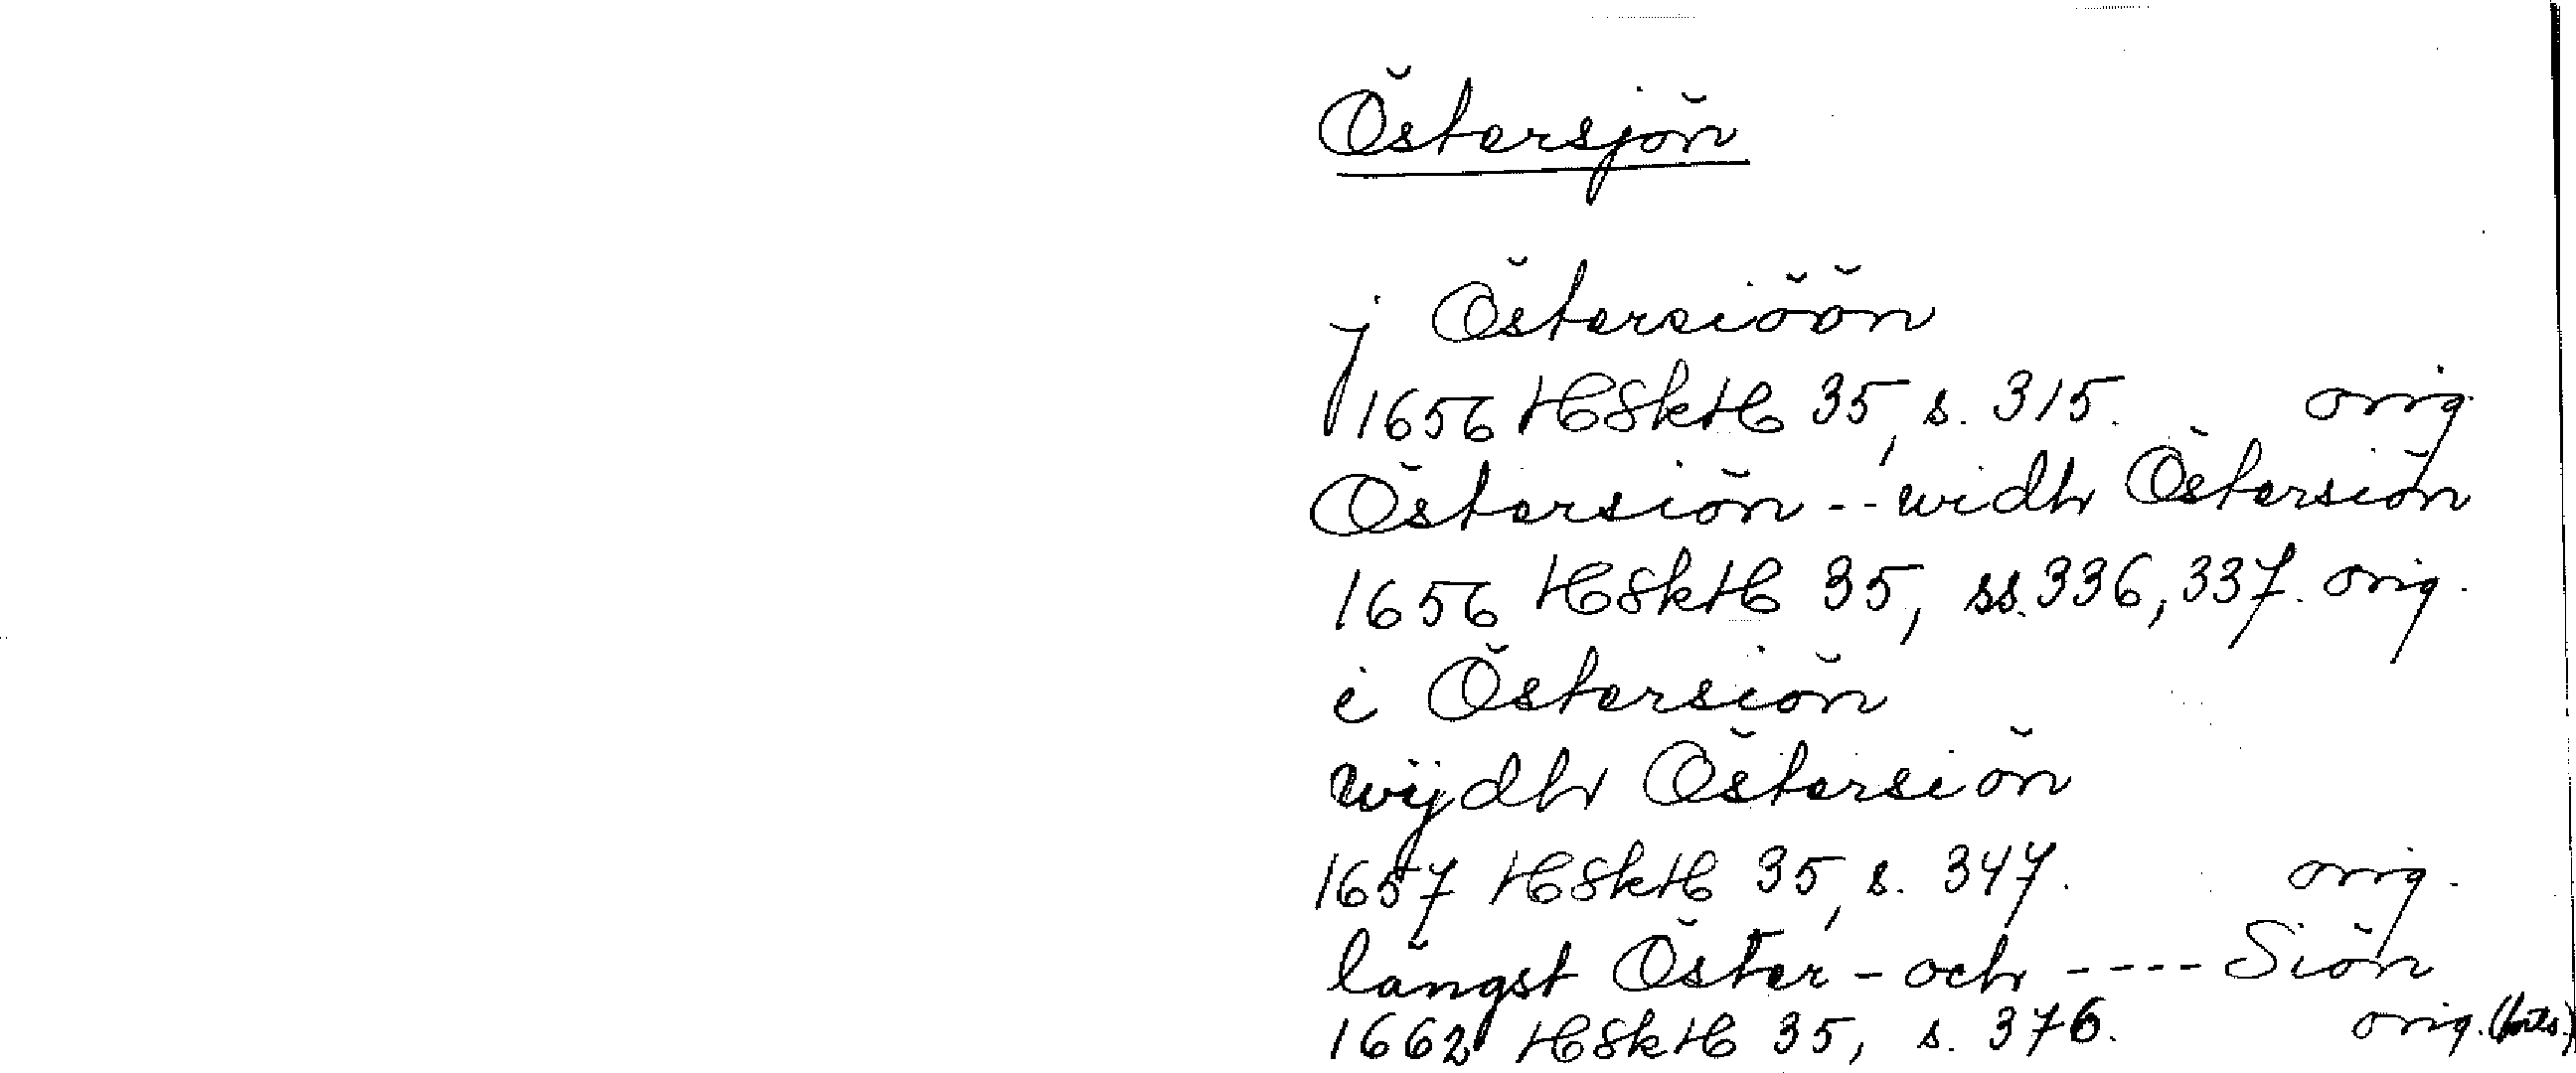 Östersjön
j Östersiöön
1656 HSkH 35, s. 315. orig
Östersiön -- widh Östersiön
1656 HSkH 35, ss. 336, 337. orig.
i Östersiön
wijdh Östersiön
1657 HSkH 35, s. 347. orig.
längst Öster- och ---- Siön
1662 HSkH 35, s. 376. orig. (forts.)